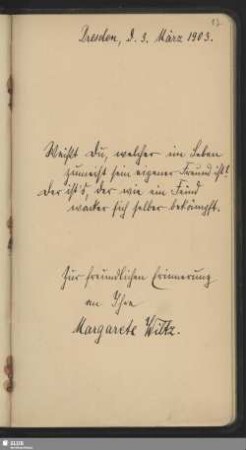 Dresden, d. 3. März 1903.
Weißt Du, welcher im Leben
zumeist sein eigener Freund ist?
Der ist's, der wie ein Feind
wacker sich selber bekämpft.
Zur freundlichen Erinnerung
an Ihre
Margarete Wiltz.
SLUB